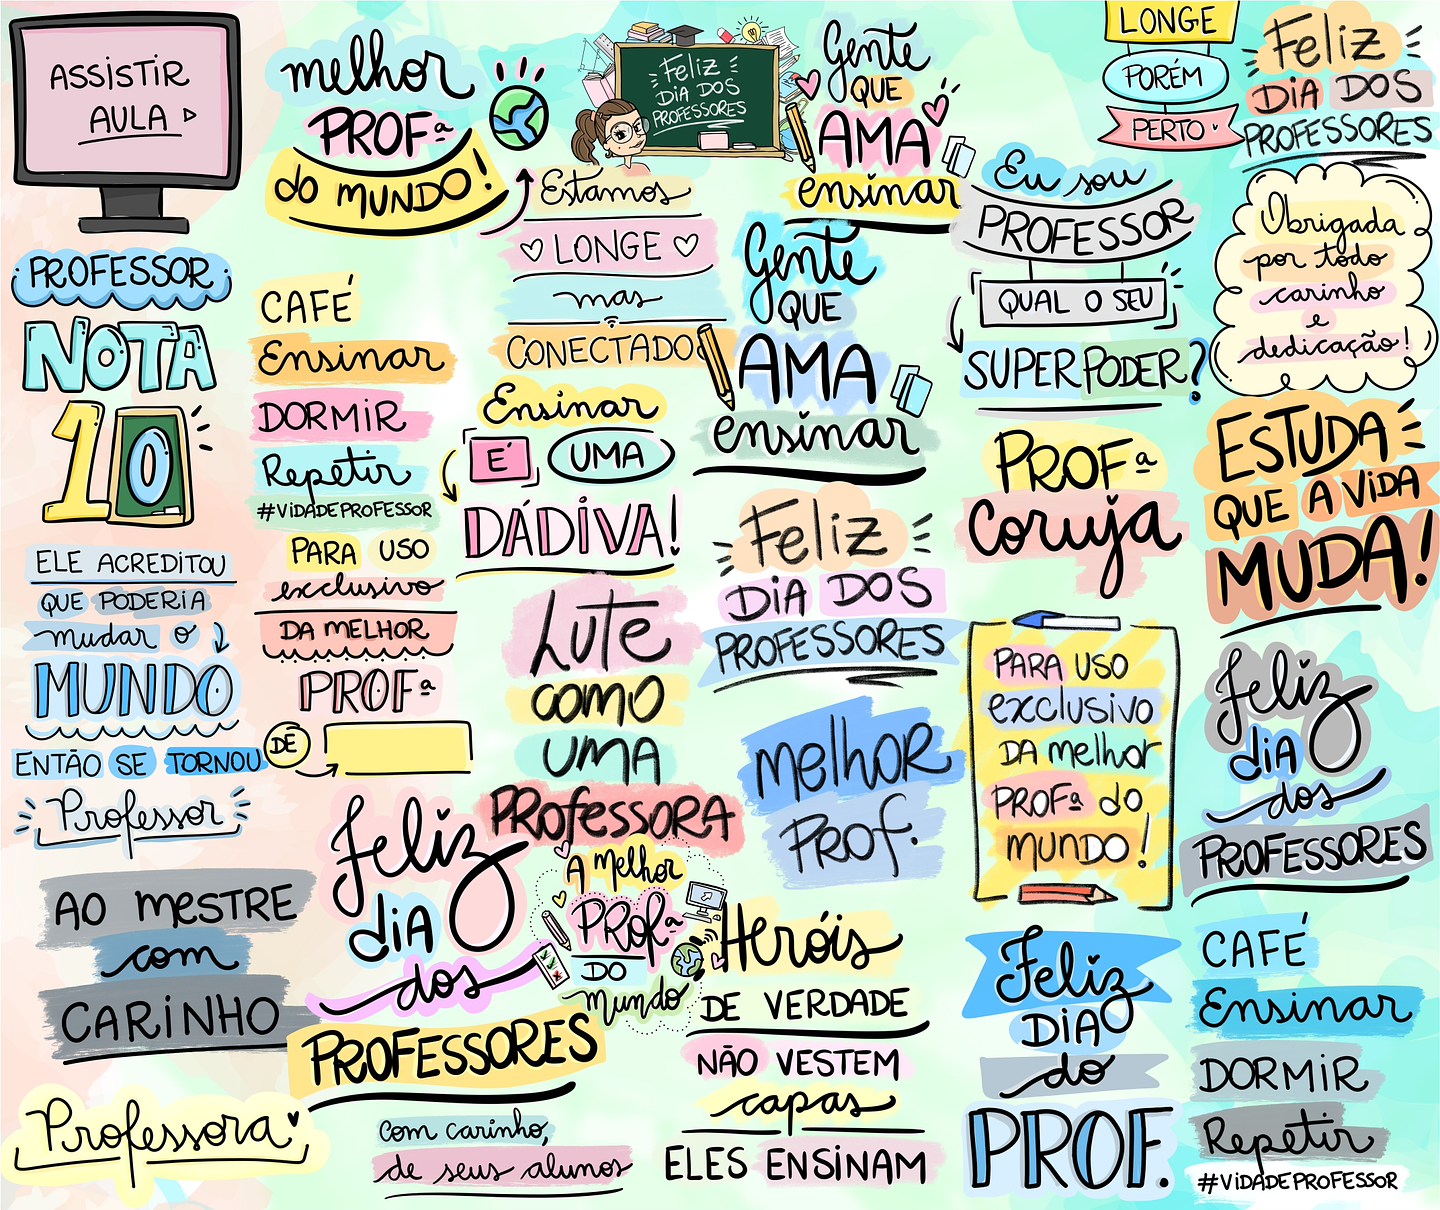 ASSISTIR
AULA
PROFESSOR
NOTA
10
ELE ACREDITOU
QUE PODERIA
mudar o
MUNDO
ENTÃO SE TORNOU
Professor
AO MESTRE
com
CARINHO
Professora
melhor
PROFª
do MUNDO!
CAFÉ
Ensinar
DORMIR
Repetir
#VIDADEPROFESSOR
PARA USO
exclusivo
DA MELHOR
PROFª
DÊ
Feliz
DIA
dos
PROFESSORES
com carinho,
de seus alunos
Feliz
DIA DOS
PROFESSORES
Estamos
LONGE
mas
CONECTADOS
Ensinar
É UMA
DÁDIVA!
Lute
COMO
UMA
PROfessORA
A Melhor
PROfª
DO
Mundo
Gente
QUE
AMA
ensinar
Gente
QUE
AMA
ensinar
Feliz
DIA DOS
PROFESSORES
MelhOR
PROf.
Heróis
DE VERDADE
NÃO VESTEM
capas
ELES ENSINAM
LONGE
PORÉM
PERTO
Eu sou
PROFESSOR
QUAL O SEU
SUPERPODER?
PROFª
coruja
PARA USO
exclusivo
DA melhor
PROFª do
mundo!
Feliz
DIA
do
PROF.
Feliz
DIA DOS
PROFESSORES
Obrigada
por todo
carinho
e
dedicação!
ESTUDA
QUE A VIDA
MUDA!
Feliz
DIA
dos
PROFESSORES
CAFÉ
Ensinar
DORMIR
Repetir
#VIDADEPROFESSOR